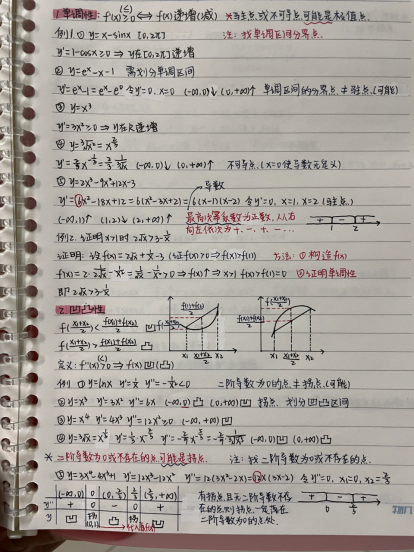 1.单调性: f'(x)≥0(≤) ⇔ f(x)递增(减) ※驻点或不可导点可能是极值点.
例1.① y=x-sinx [0,2π] 注: 找单调区间分界点.
y'=1-cosx≥0 ⇒ y在[0,2π]递增
② y=e^x-x-1 需划分单调区间
y'=e^x-1=e^x-e^0 令y'=0. x=0 (-∞,0)↓ (0,+∞)↑ 单调区间的分界点 驻点(可能)
③ y=x^3
y'=3x^2≥0 ⇒ y在R递增
④ y=∛x^2 = x^(2/3)
y'=2/3 x^(-1/3)=2/3·1/∛x (-∞,0)↓ (0,+∞)↑ 不可导点(x=0使导数无定义)
⑤ y=2x^3-9x^2+12x-3 导数
y'=6x^2-18x+12=6(x^2-3x+2)=6(x-1)(x-2) 令y'=0, x=1, x=2 (驻点)
(-∞,1)↑ (1,2)↓ (2,+∞)↑ 最高次幂系数为正数,从右 + - +
向左依次为+、-、+、-… 1 2
例2.证明x>1时 2√x>3-1/x
证明: 设f(x)=2√x+1/x-3 (证f(x)>0⇒f(x)>f(1)) 方法: ①构造f(x)
f'(x)=2·1/2√x-1/x^2=1/√x-1/x^2>0 ⇒ f(x)↑ ⇒ x>1 f(x)>f(1)=0 ②证明单调性
即2√x>3-1/x
2.凹凸性
f((x1+x2)/2)<(f(x1)+f(x2))/2 凹
f((x1+x2)/2)>(f(x1)+f(x2))/2 凸
x1 (x1+x2)/2 x2 x1 (x1+x2)/2 x2
定义: f''(x)≥0(≤) ⇒ f(x)凹(凸)
例1 ①y=lnx y'=1/x y''=-1/x^2<0 二阶导数为0的点≠拐点(可能)
②y=x^3 y'=3x^2 y''=6x (-∞,0)凸 (0,+∞)凹 拐点, 划分凹凸区间
③y=x^4 y'=4x^3 y''=12x^2≥0 (-∞,+∞)凹
※二阶导数为0或不存在的点可能是拐点. 注: 找二阶导数为0或不存在的点.
⑤y=3x^4-4x^3+1 y'=12x^3-12x^2 y''=12(3x^2-2x)=12x(3x-2) 令y''=0, x1=0, x2=2/3
(-∞,0) 0 (0,2/3) 2/3 (2/3,+∞) 有拐点且无二阶导数不存 + - +
y'' + 0 - 0 + 在的点则拐点一定落在 0 2/3
y 凹 拐(0,1) 凸 拐 凹 二阶导数为0的点处.